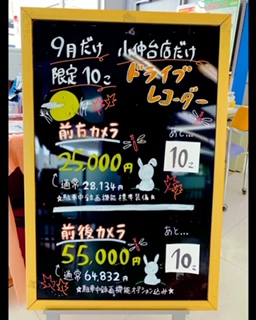 9月だけ 小仲台店だけ
限定10こ ドライブ
レコーダー
前方カメラ あと…
25,000円 10こ
通常28,134円
★駐車中録画機能標準装備★
前後カメラ あと…
55,000円 10こ
通常64,832円
★駐車中録画機能オプション込み★